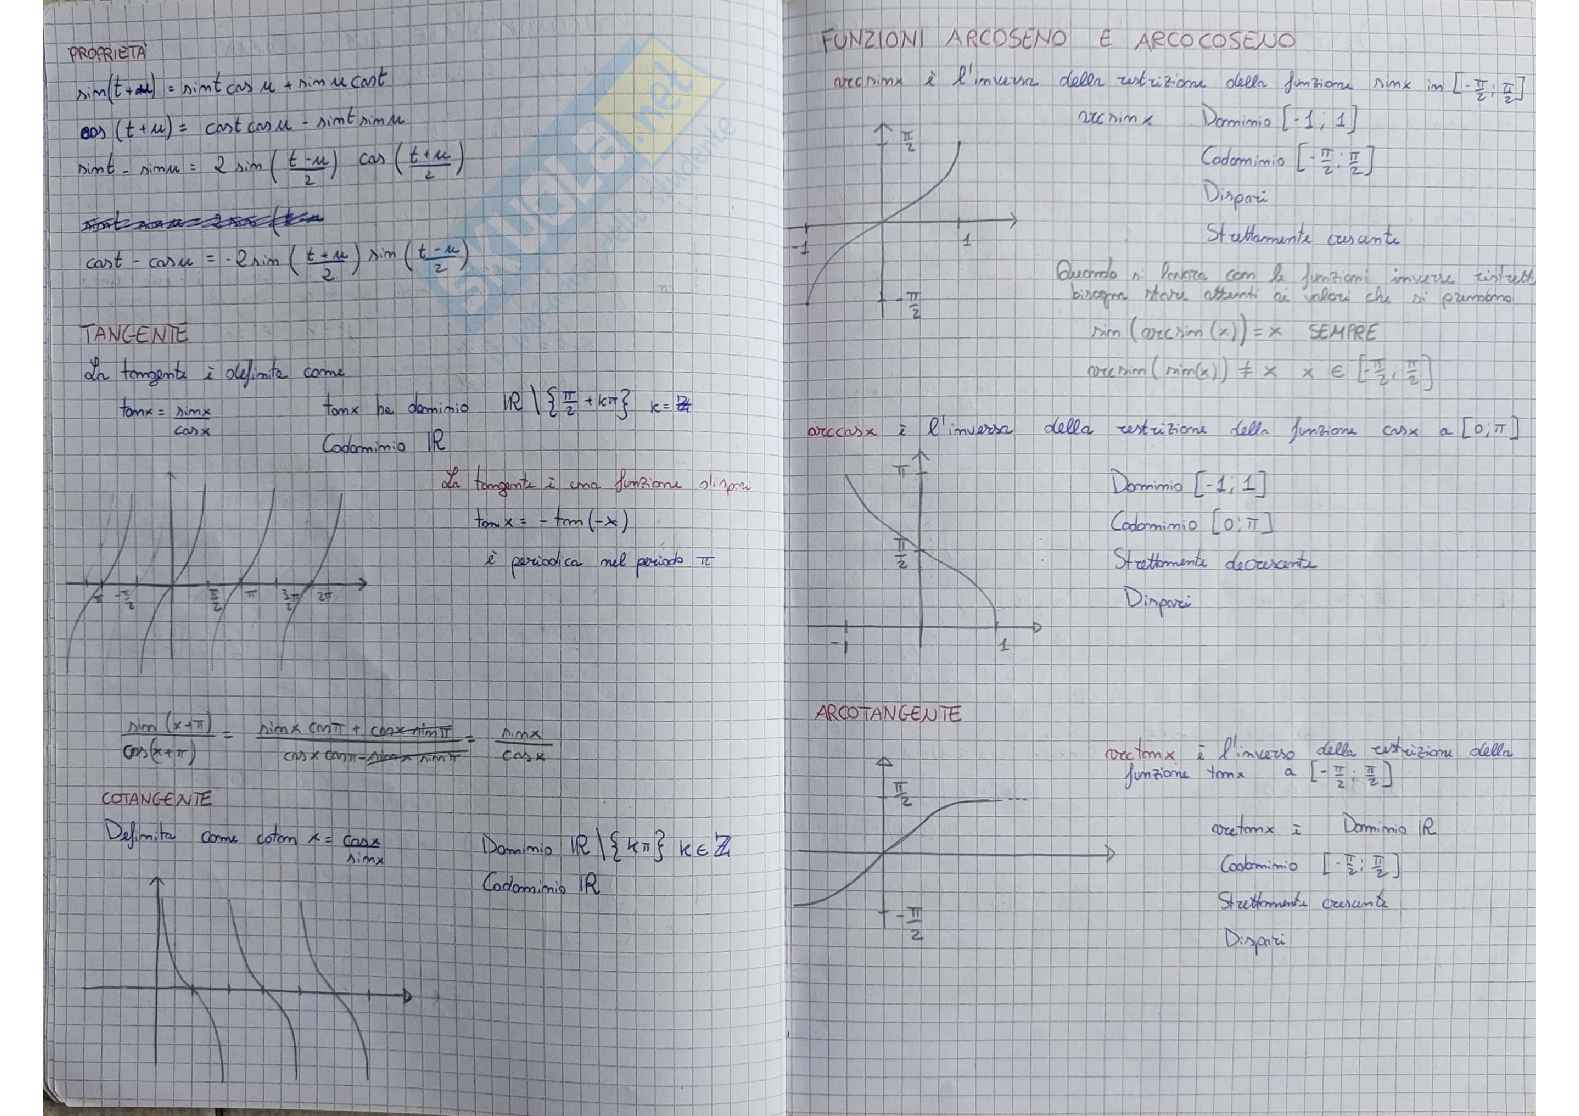 PROPRIETÀ
sin(t+u) = sint cosu + sinu cost
cos(t+u) = cost cosu - sint sinu
sint - sinu = 2 sin(t-u/2) cos(t+u/2)
cost - cosu = -2 sin(t+u/2) sin(t-u/2)
TANGENTE
La tangente è definita come
tanx = sinx/cosx
tanx ha dominio ℝ\{π/2 + kπ} k = ℤ
Codominio ℝ
La tangente è una funzione dispari
tanx = -tan(-x)
è periodica nel periodo π
-π -π/2 π/2 π 3π/2 2π
sin(x+π)/cos(x+π) = sinx cosπ + cosx sinπ/cosx cosπ - sinx sinπ = sinx/cosx
COTANGENTE
Definita come cotan x = cosx/sinx
Dominio ℝ\{kπ} k ∈ ℤ
Codominio ℝ
FUNZIONI ARCOSENO E ARCOCOSENO
arcsinx è l'inversa della restrizione della funzione sinx in [-π/2; π/2]
arcsinx Dominio [-1; 1]
Codominio [-π/2; π/2]
Dispari
Strettamente crescente
π/2
-1 1
-π/2
Quando si lavora con le funzioni inverse
bisogna stare attenti ai valori che si prendono
sin(arcsin(x)) = x SEMPRE
arcsin(sin(x)) ≠ x x ∈ [-π/2; π/2]
arccosx è l'inversa della restrizione della funzione cosx a [0; π]
π
π/2
-1 1
Dominio [-1; 1]
Codominio [0; π]
Strettamente decrescente
Dispari
ARCOTANGENTE
arctanx è l'inverso della restrizione della
funzione tanx a [-π/2; π/2]
π/2
-π/2
arctanx è Dominio ℝ
Codominio [-π/2; π/2]
Strettamente crescente
Dispari
SKUOLA.net